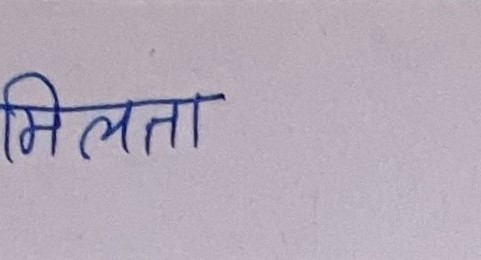 मिलता